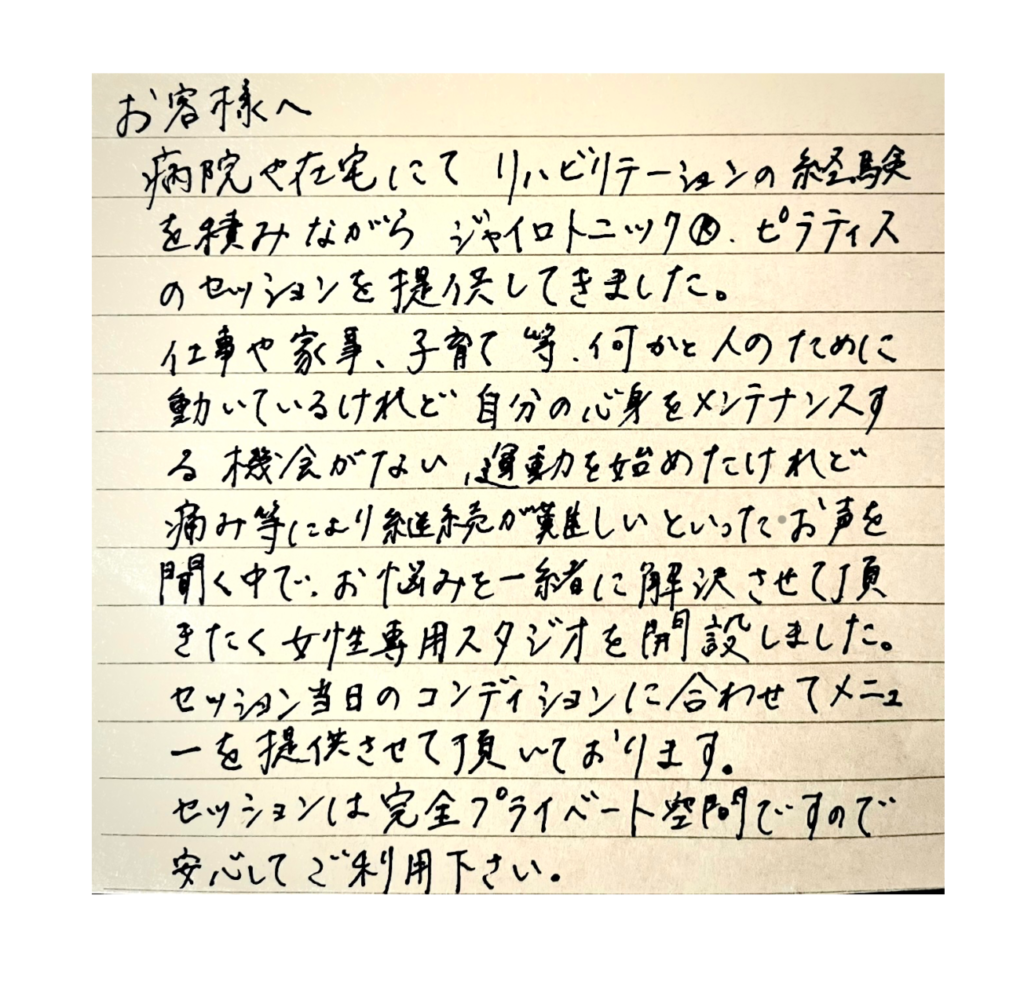 お客様へ
病院や在宅にて リハビリテーションの経験
を積みながら ジャイロトニック®、ピラティス
のセッションを提供してきました。
仕事や家事、子育て等、何かと人のために
動いているけれど 自分の心身をメンテナンスす
る機会がない、運動を始めたけれど
痛み等により継続が難しいといったお声を
聞く中で、お悩みを一緒に解決させて頂
きたく女性専用スタジオを開設しました。
セッション当日のコンディションに合わせてメニュ
ーを提供させて頂いております。
セッションは完全プライベート空間ですので
安心してご利用下さい。